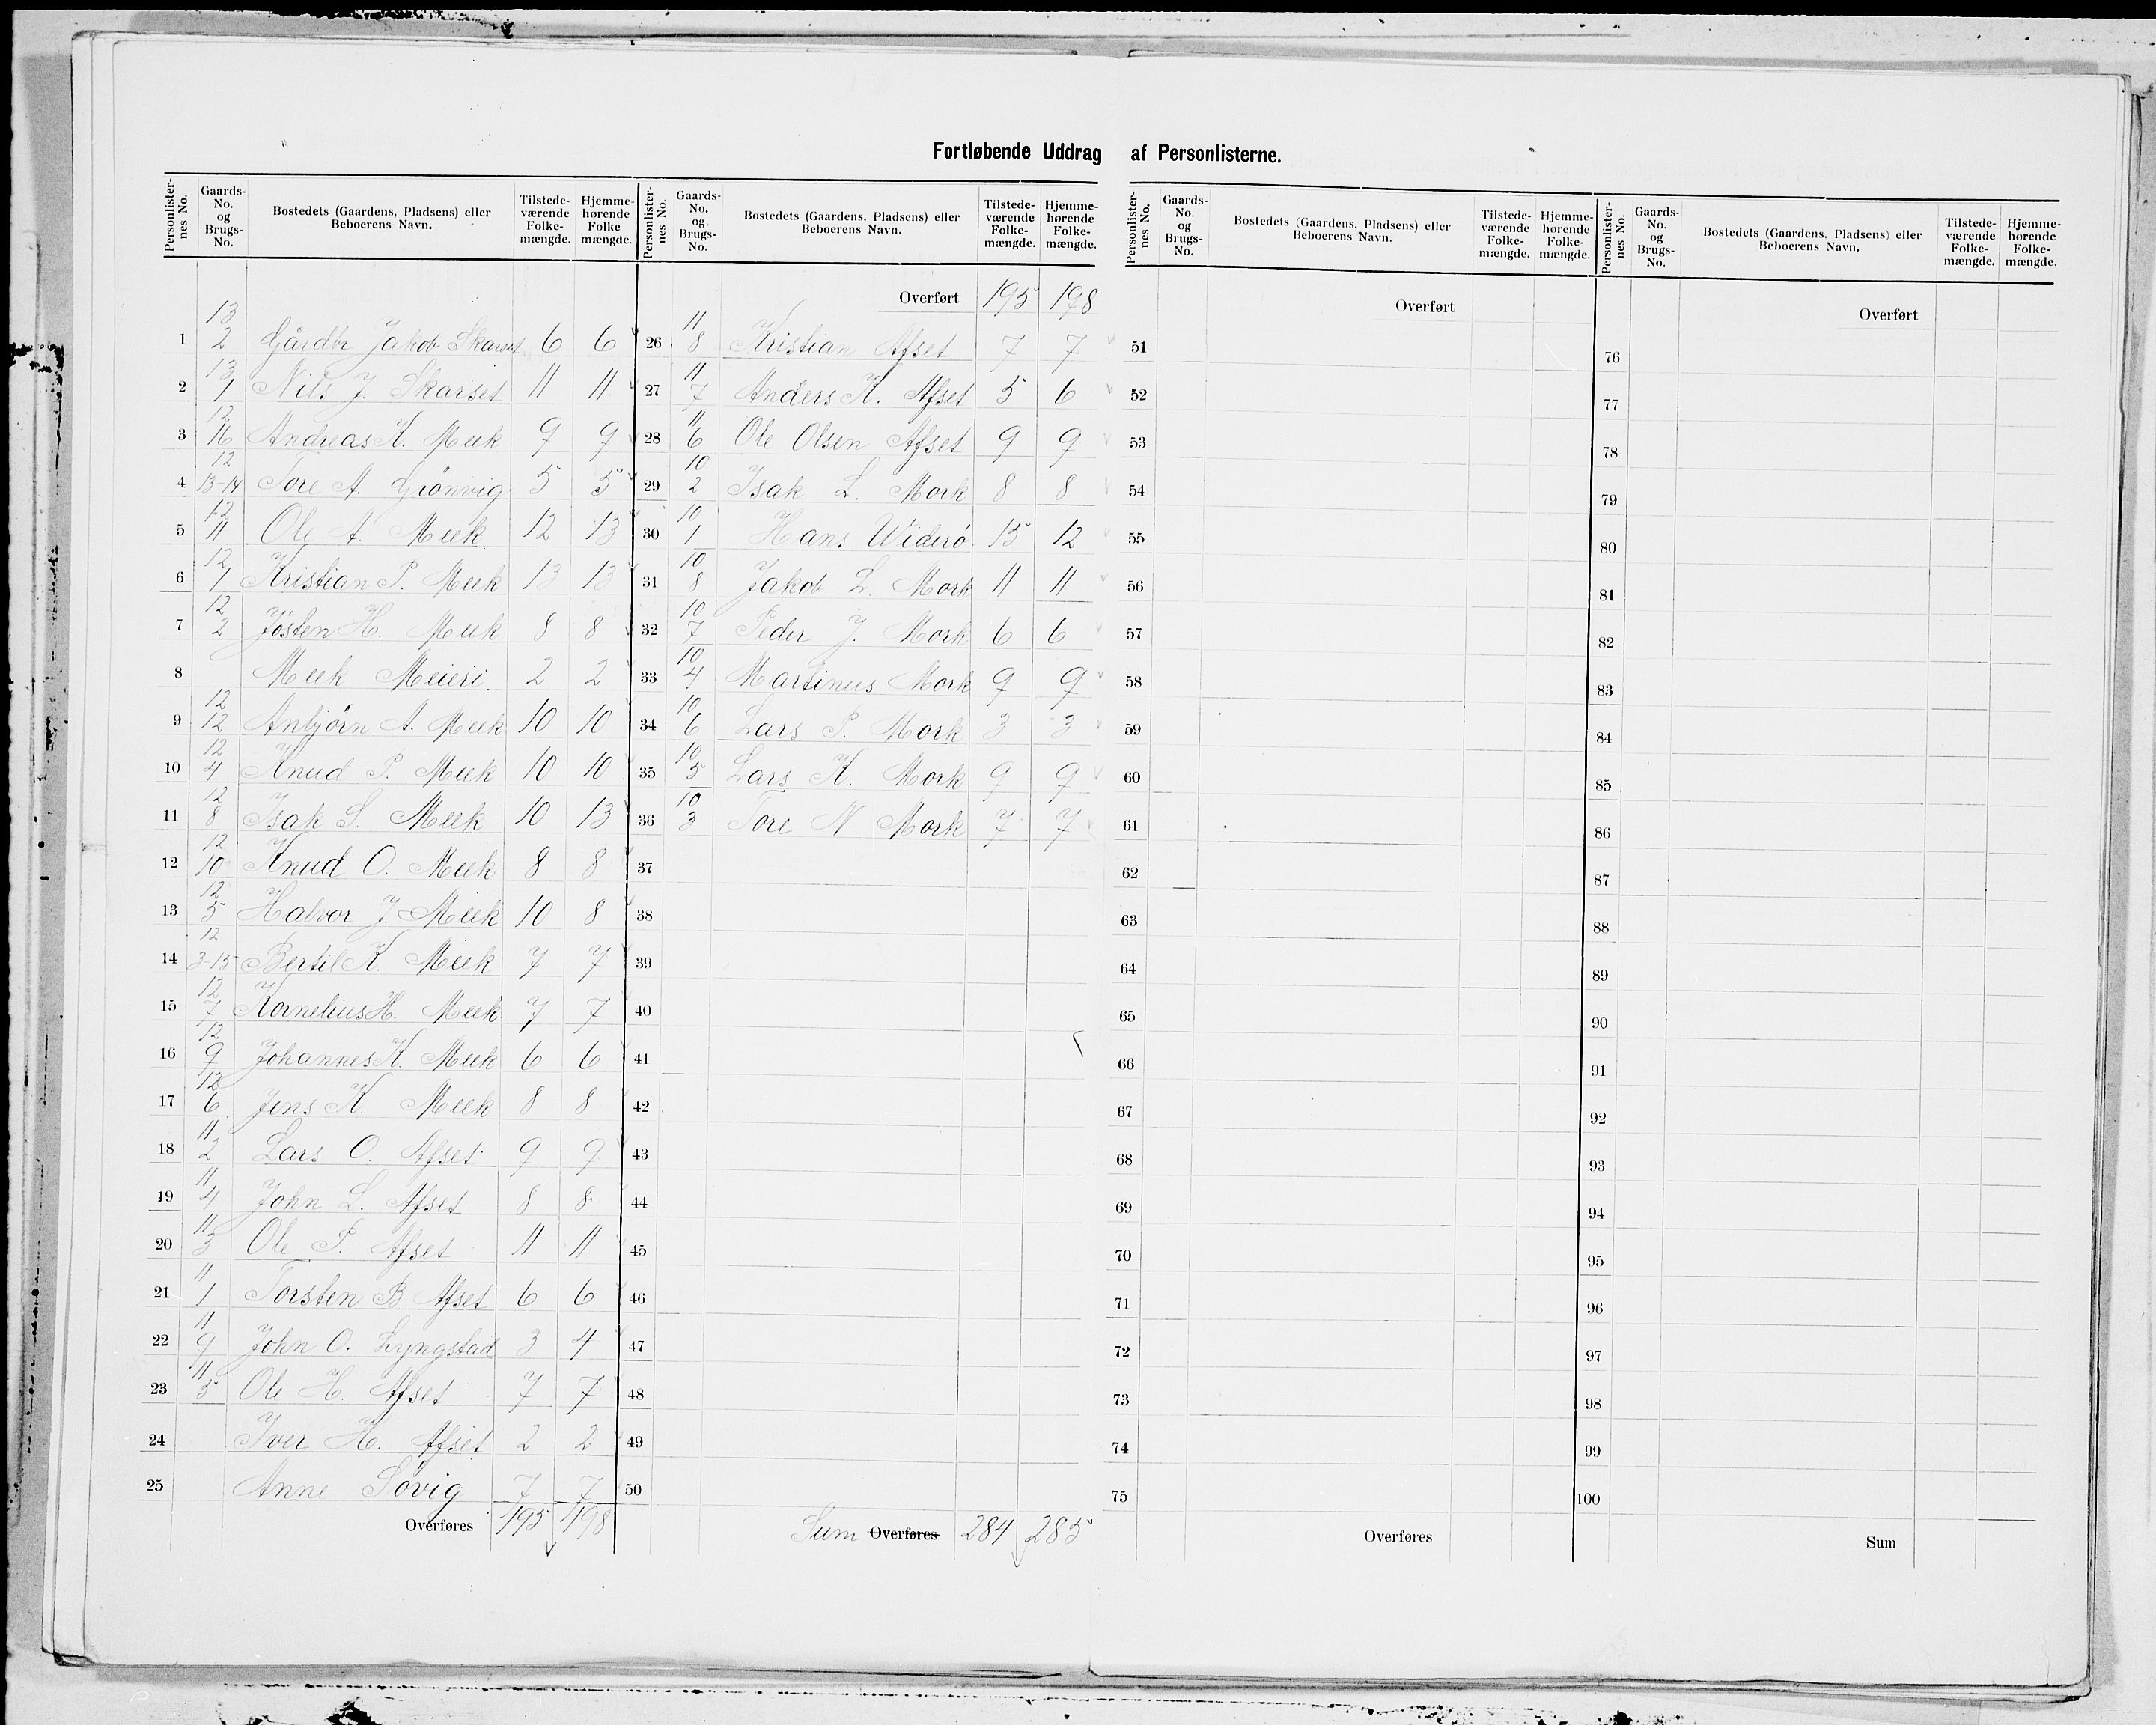 Fortløbende Uddrag af Personlisterne.
Personlister-nes No. Gaards-No. og Brugs-No. Bostedets (Gaardens, Pladsens) eller Beboerens Navn. Tilstede-værende Folke-mængde. Hjemme-hørende Folke mængde.
13
1 2 Gårdbr Jakob Skarset 6 6
13
2 1 Nils J. Skarset 11 11
12
3 16 Andreas K. Meek 9 9
12
4 13-14 Tore A. Grönvig 5 5
12
5 11 Ole A. Meek 12 13
12
6 1 Kristian P. Meek 13 13
12
7 2 Jösten H. Meek 8 8
8 Meek Meieri. 2 2
12
9 12 Anbjörn A. Meek 10 10
12
10 4 Knud P. Meek 10 10
12
11 8 Isak S. Meek 10 13
12
12 10 Knud O. Meek 8 8
12
13 5 Halvor J. Meek 10 8
12
14 3-15 Bertil K. Meek 7 7
12
15 7 Kornelius H. Meek 7 7
12
16 9 Johannes K. Meek 6 6
12
17 6 Jens K. Meek 8 8
11
18 2 Lars O. Afset 9 9
11
19 4 John L. Afset 8 8
11
20 3 Ole P. Afset 11 11
11
21 1 Torsten B Afset 6 6
11
22 9 John O. Lyngstad 3 4
11
23 5 Ole H. Afset 7 7
24 Iver H. Afset 2 2
25 Anne Sövig 7 7
Overføres 195 198
Personlister-nes No. Gaards-No. og Brugs-No. Bostedets (Gaardens, Pladsens) eller Beboerens Navn. Tilstede-værende Folke-mængde. Hjemme-hørende Folke-mængde.
Overført 195 198
11
26 8 Kristian Afset 7 7
11
27 7 Anders K. Afset 5 6
11
28 6 Ole Olsen Afset 9 9
10
29 2 Isak L. Mork 8 8
10
30 1 Hans Widerö 15 12
10
31 8 Jakob L. Mork 11 11
10
32 7 Peder J. Mork 6 6
10
33 4 Martinus Mork 9 9
10
34 6 Lars P. Mork 3 3
10
35 5 Lars K. Mork 9 9
10
36 3 Tore N Mork 7 7
37
38
39
40
41
42
43
44
45
46
47
48
49
50
Sum Overføres 284 285
Personlister-nes No. Gaards-No. og Brugs-No. Bostedets (Gaardens, Pladsens) eller Beboerens Navn. Tilstede-værende Folke-mængde. Hjemme-hørende Folke-mængde.
Overført
51
52
53
54
55
56
57
58
59
60
61
62
63
64
65
66
67
68
69
70
71
72
73
74
75
Overføres
Personlister-nes No. Gaards-No. og Brugs-No. Bostedets (Gaardens, Pladsens) eller Beboerens Navn. Tilstede-værende Folke-mængde. Hjemme-hørende Folke-mængde.
Overført
76
77
78
79
80
81
82
83
84
85
86
87
88
89
90
91
92
93
94
95
96
97
98
99
100
Sum